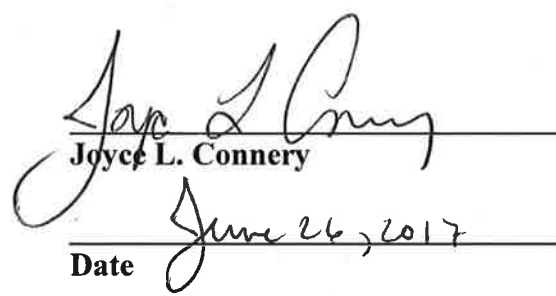 Joyce L Connery
Joyce L. Connery
June 26, 2017
Date